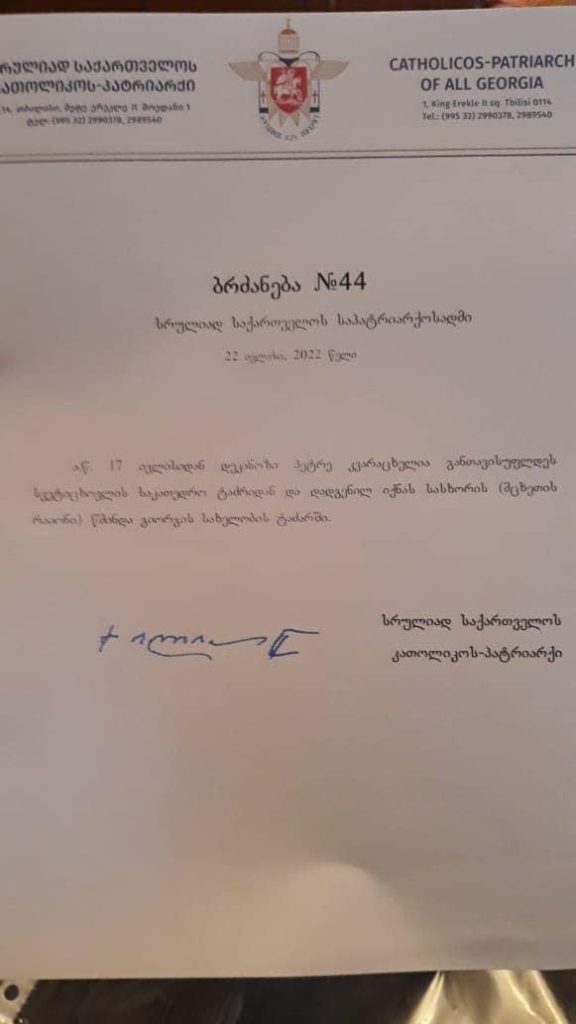 სრულიად საქართველოს
კათოლიკოს-პატრიარქი
0114, თბილისი, მეფე ერეკლე II მოედანი 1
ტელ: (995 32) 2990378, 2989540
CATHOLICOS-PATRIARCH
OF ALL GEORGIA
1, King Erekle II sq. Tbilisi 0114
Tel.: (995 32) 2990378, 2989540
ბრძანება №44
სრულიად საქართველოს საპატრიარქოსადმი
22 ივლისი, 2022 წელი
ა.წ. 17 ივლისიდან დეკანოზი პეტრე კვარაცხელია განთავისუფლდეს
სვეტიცხოვლის საკათედრო ტაძრიდან და დადგენილ იქნას სასხორის (მცხეთის
რაიონი) წმინდა გიორგის სახელობის ტაძარში.
სრულიად საქართველოს
კათოლიკოს-პატრიარქი